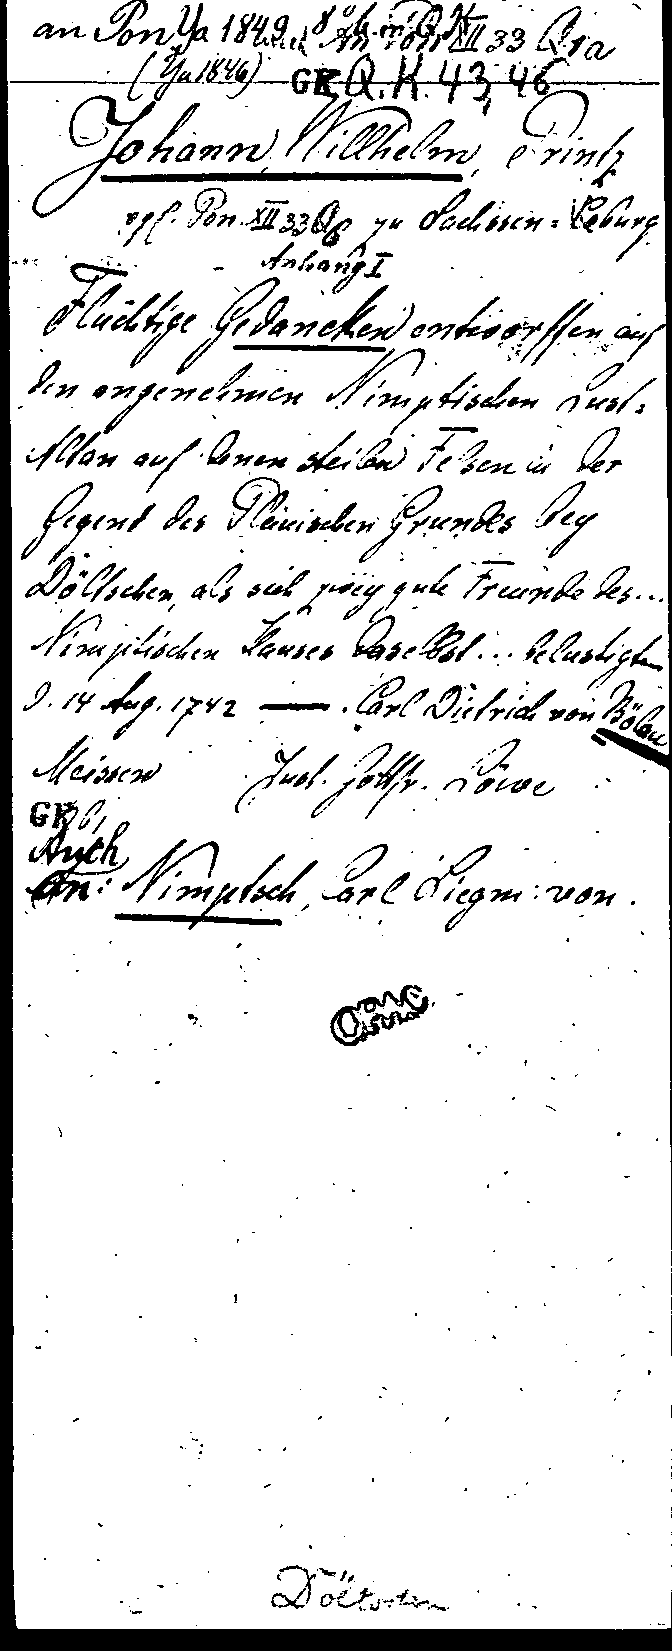 an Pon Ya 1849 8° An Pon XII 33 Qra
(Ya 1846) GK Q. K. 43, 46
Johann Willhelm, Printz
vgl. Pon. XII 33 zu Sachsen-Coburg
Anhang I
Flüchtige Gedancken entworffen auf
den angenehmen Nimptischen Lust-
Altan auf denen steilen Felsen in der
Gegend des Plauischen Grundes bey
Döltschen, als sich zwey gute Freunde des...
Nimptischen Hauses daselbst ... belustigten
d. 14 Aug. 1742 — . Carl Dietrich von Bölau
Meissen Just. Gottfr. Löwe
GK
Auch
an: Nimptsch, Carl Siegm: von.
Döltschen